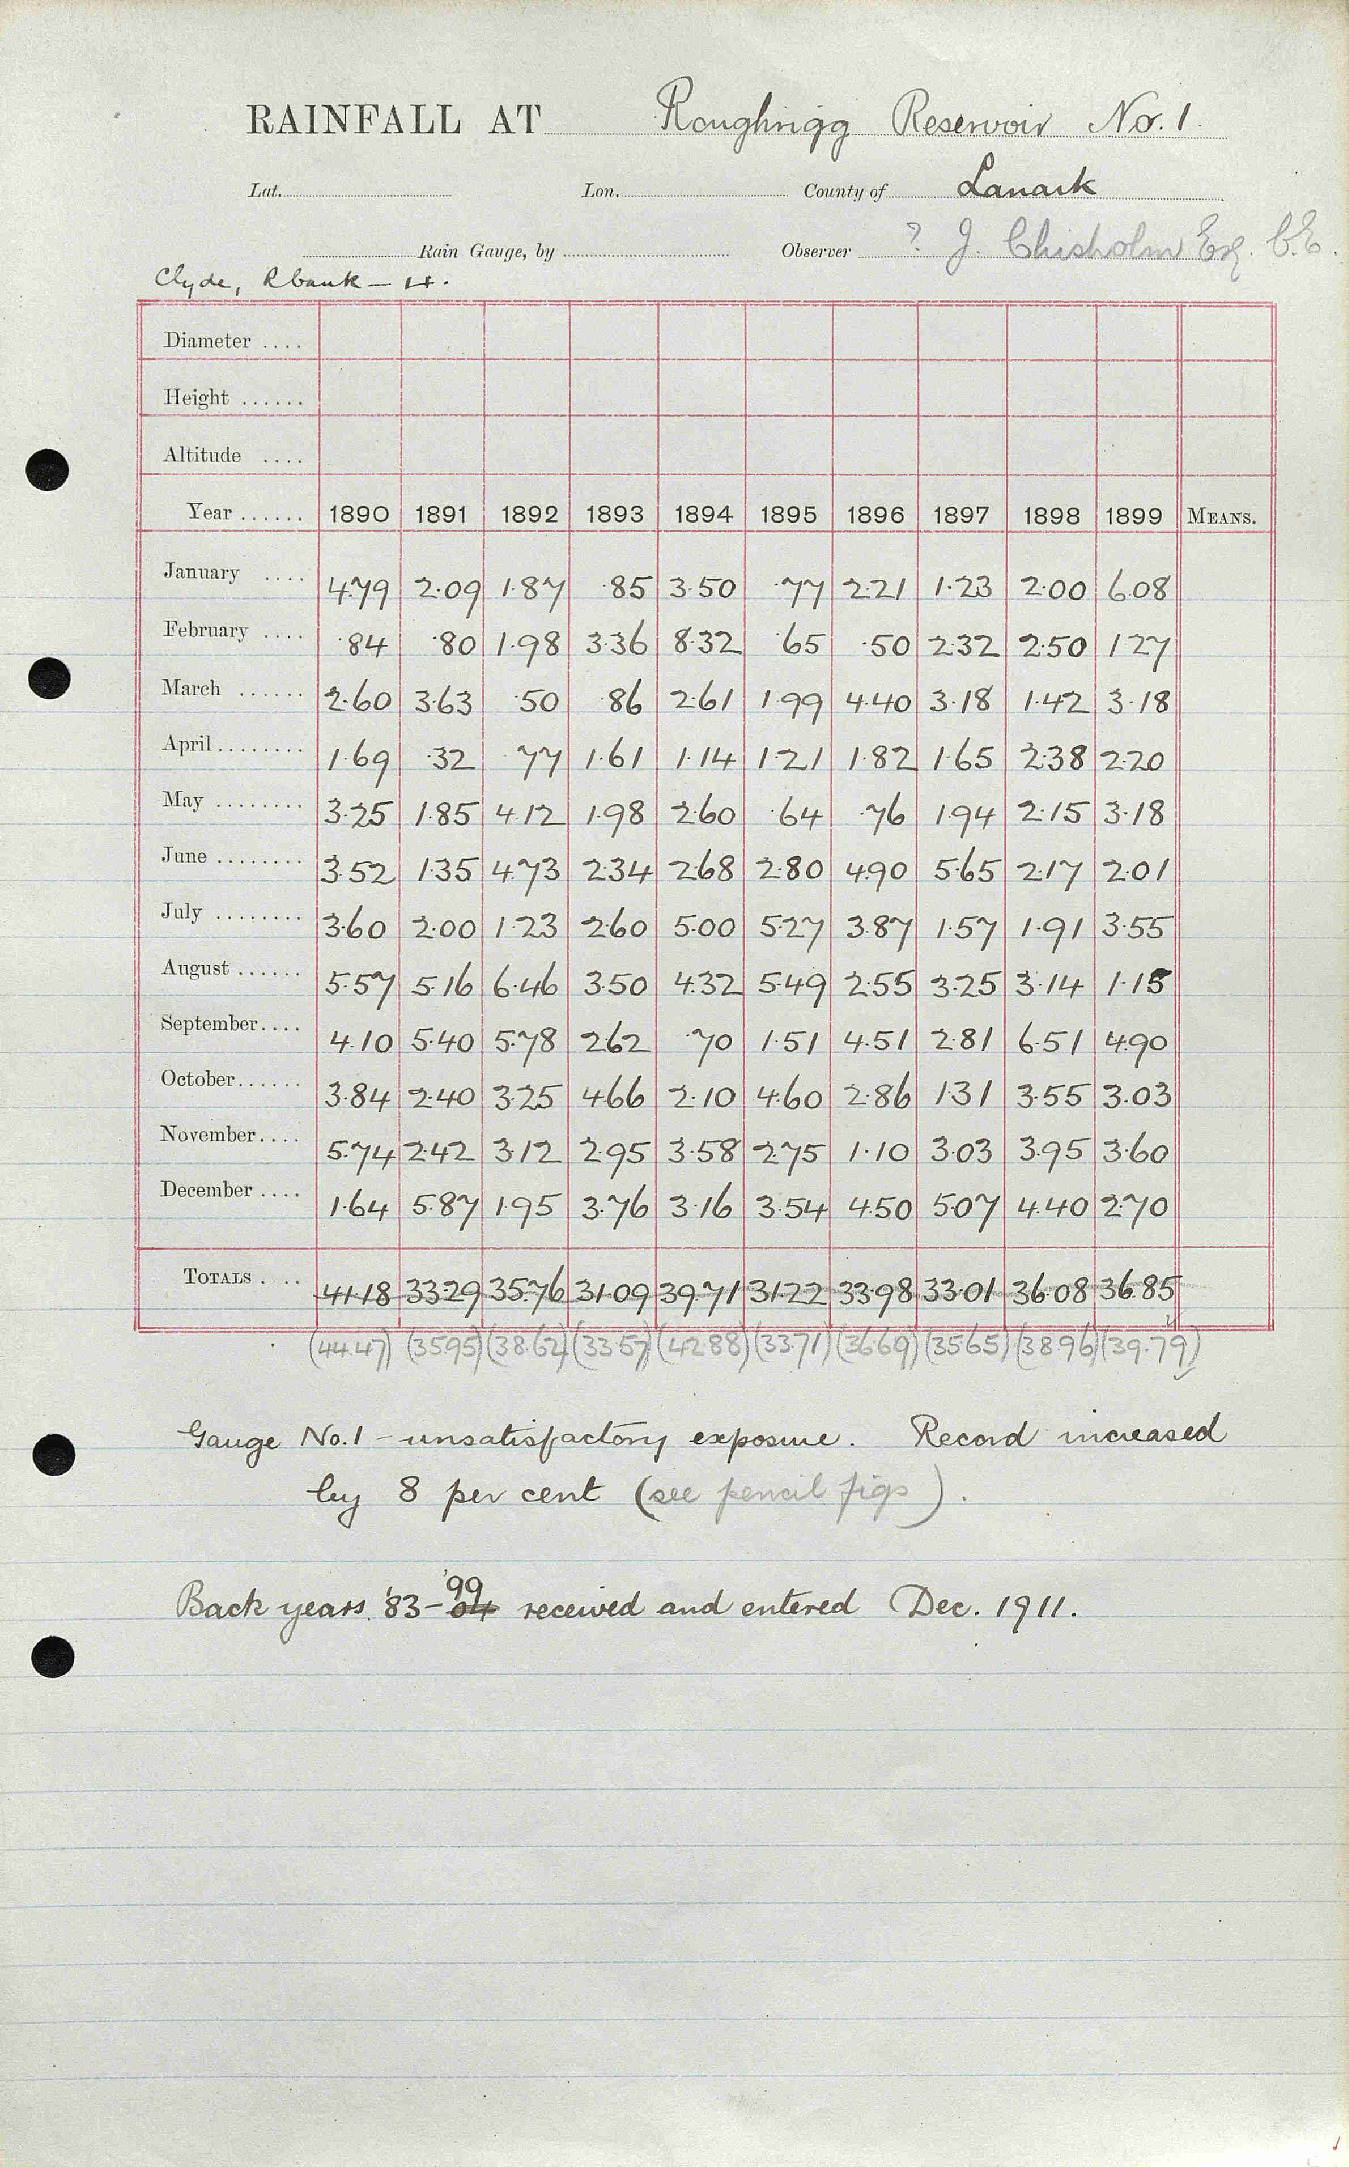 RAINFALL AT Roughrigg Reservoir No. 1
Lat. Lon. County of Lanark
Rain Gauge, by Observer ? J. Chisholm Esq. C.E.
Clyde, R bank – 14.
Diameter ....
Height ......
Altitude ....
Year ...... 1890 1891 1892 1893 1894 1895 1896 1897 1898 1899 MEANS.
January .... 4.79 2.09 1.87 .85 3.50 .77 2.21 1.23 2.00 6.08
February .... .84 .80 1.98 3.36 8.32 .65 .50 2.32 2.50 1.27
March ...... 2.60 3.63 .50 .86 2.61 1.99 4.40 3.18 1.42 3.18
April ........ 1.69 .32 .77 1.61 1.14 1.21 1.82 1.65 2.38 2.20
May ........ 3.25 1.85 4.12 1.98 2.60 .64 .76 1.94 2.15 3.18
June ........ 3.52 1.35 4.73 2.34 2.68 2.80 4.90 5.65 2.17 2.01
July ........ 3.60 2.00 1.23 2.60 5.00 5.27 3.87 1.57 1.91 3.55
August ...... 5.57 5.16 6.46 3.50 4.32 5.49 2.55 3.25 3.14 1.15
September .... 4.10 5.40 5.78 2.62 .70 1.51 4.51 2.81 6.51 4.90
October ...... 3.84 2.40 3.25 4.66 2.10 4.60 2.86 1.31 3.55 3.03
November .... 5.74 2.42 3.12 2.95 3.58 2.75 1.10 3.03 3.95 3.60
December .... 1.64 5.87 1.95 3.76 3.16 3.54 4.50 5.07 4.40 2.70
TOTALS .... 41.18 33.29 35.76 31.09 39.71 31.22 33.98 33.01 36.08 36.85
(44.47) (35.95) (38.62) (33.57) (42.88) (33.71) (36.69) (35.65) (38.96) (39.79)
Gauge No. 1 – unsatisfactory exposure. Record increased
by 8 per cent (see pencil figs).
Back years '83–04 '99 received and entered Dec. 1911.